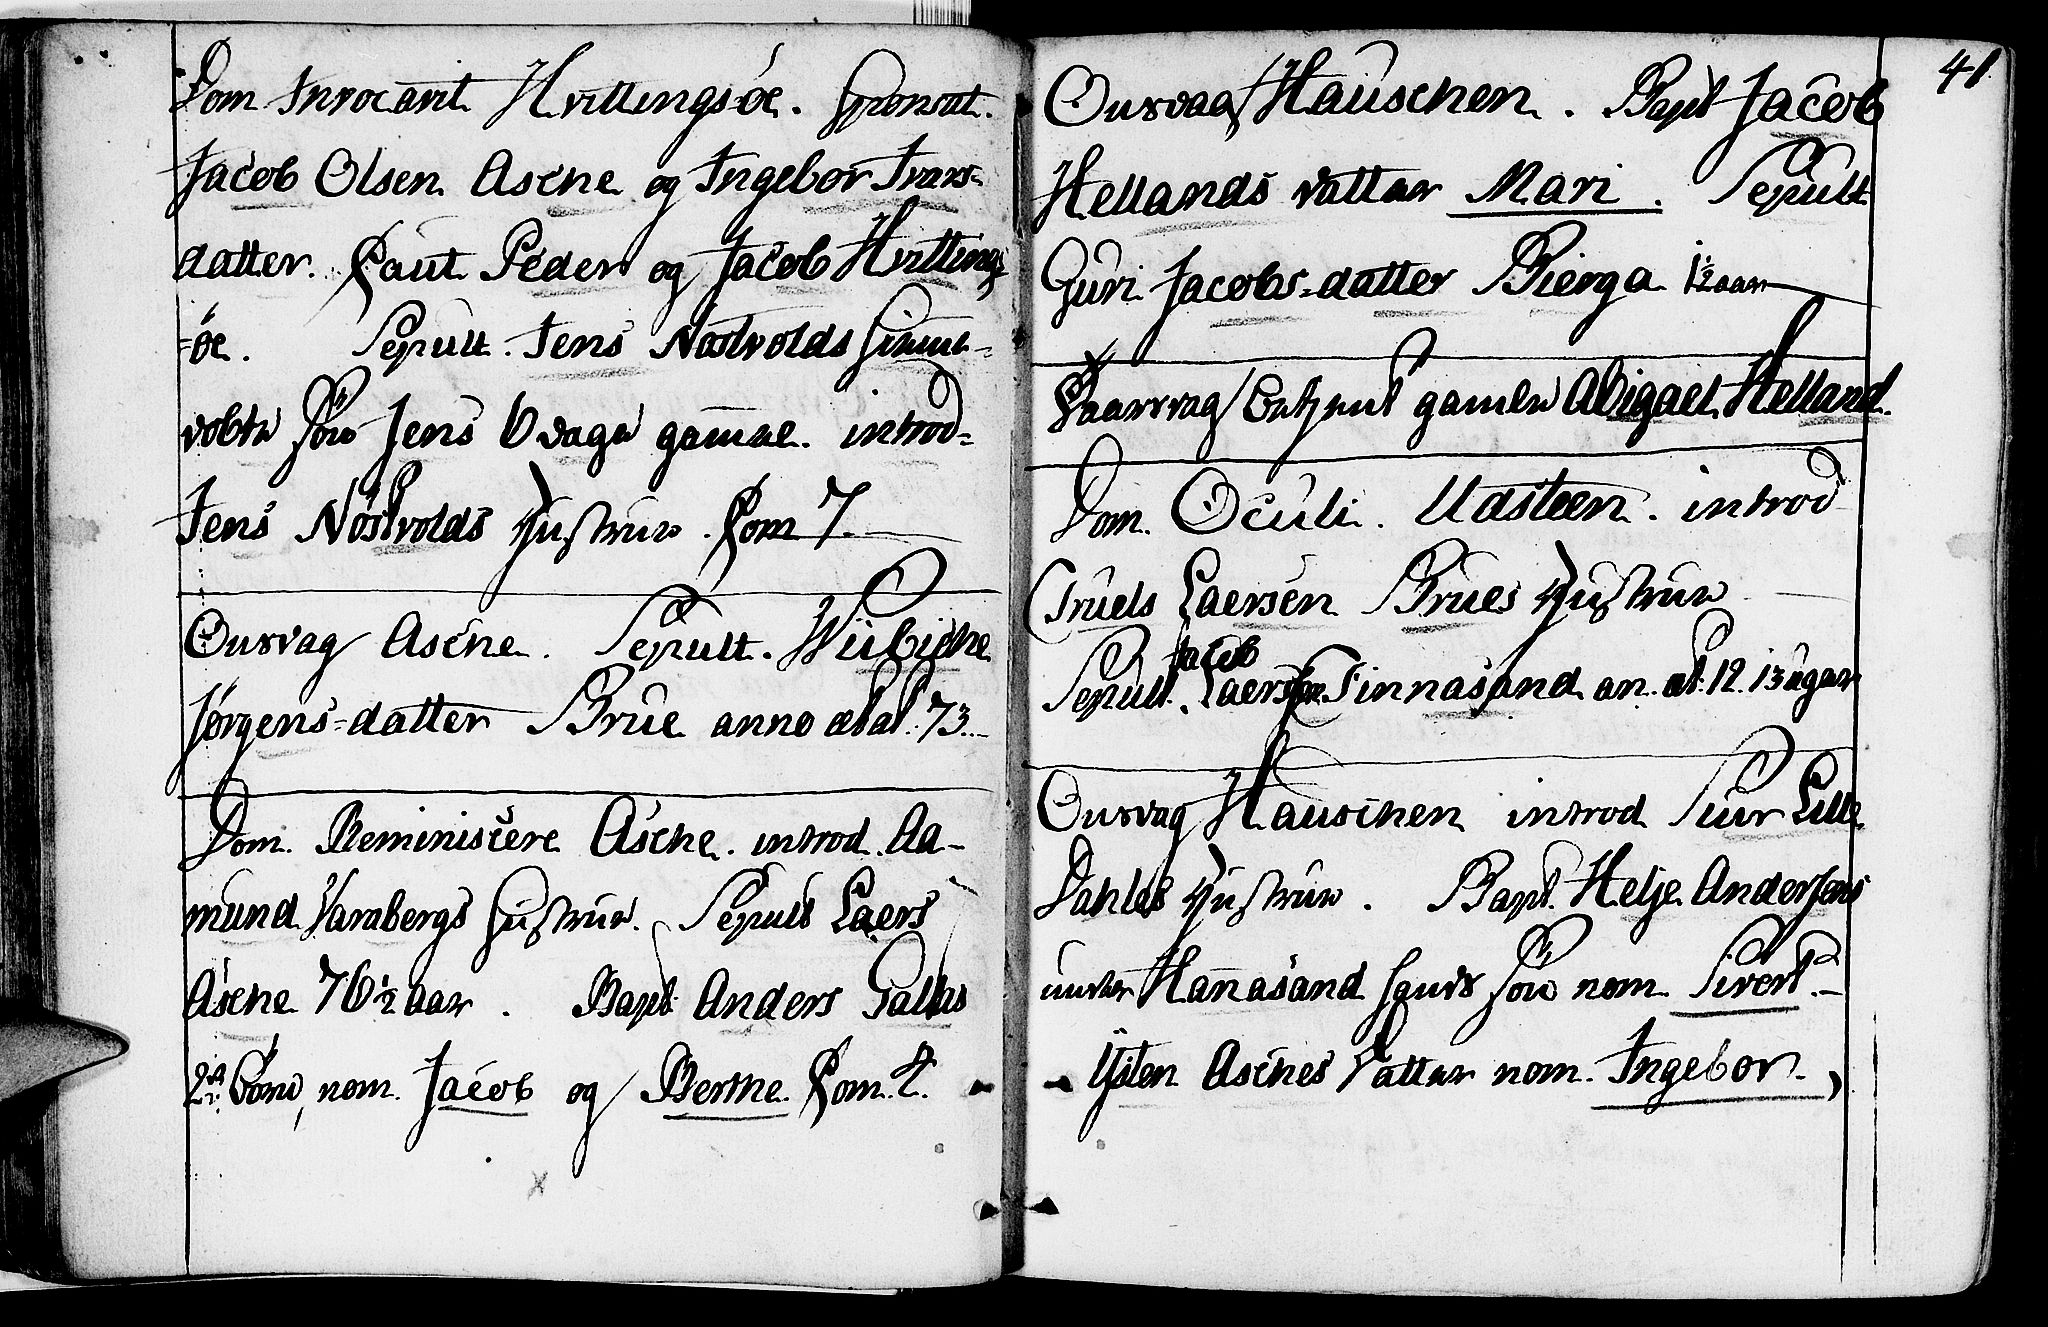 Dom Invocavit Hvittingsöe. Sponsat.
Jacob Olsen Aschе og Ingebor Ivars-
datter. Caut Peder og Jacob Hvittings
=öe. Sepult. Jens Nöstvolds
Sön Jens 6 gammel. introd=
Jens Nöstvolds Hustrue. Com 7.
Onsdag Asche. Sepult. Wiibiche
Jørgens=datter Brue anno ætat. 73.
Dom. Reminiscere Asche. introd. Aa-
mund Varabergs Hustrue. Sepult Laers
Asche 76½ aar. Bapt. Anders
2de Börn, nom. Jacob og Berthe. Com. 2.
41.
Onsdag Hauschen. Bapt Jacob
Hellands datter Mari. Sepult
Guri Jacobs=datter Bierga 1½ aar
gamle Abigael Helland.
Dom. Oculi. Udsteen. introd
Truels Laersen Brues Hustrue
Sepult. Jacob Laersen Finnasand an. æt. 12. 13 uger
Onsdag Hauschen introd Siur Lille
Dahles Hustrue. Bapt. Helje Andersens
under Hanasand Sön nom. Sivert.
Östen Asches Datter nom. Ingebor.